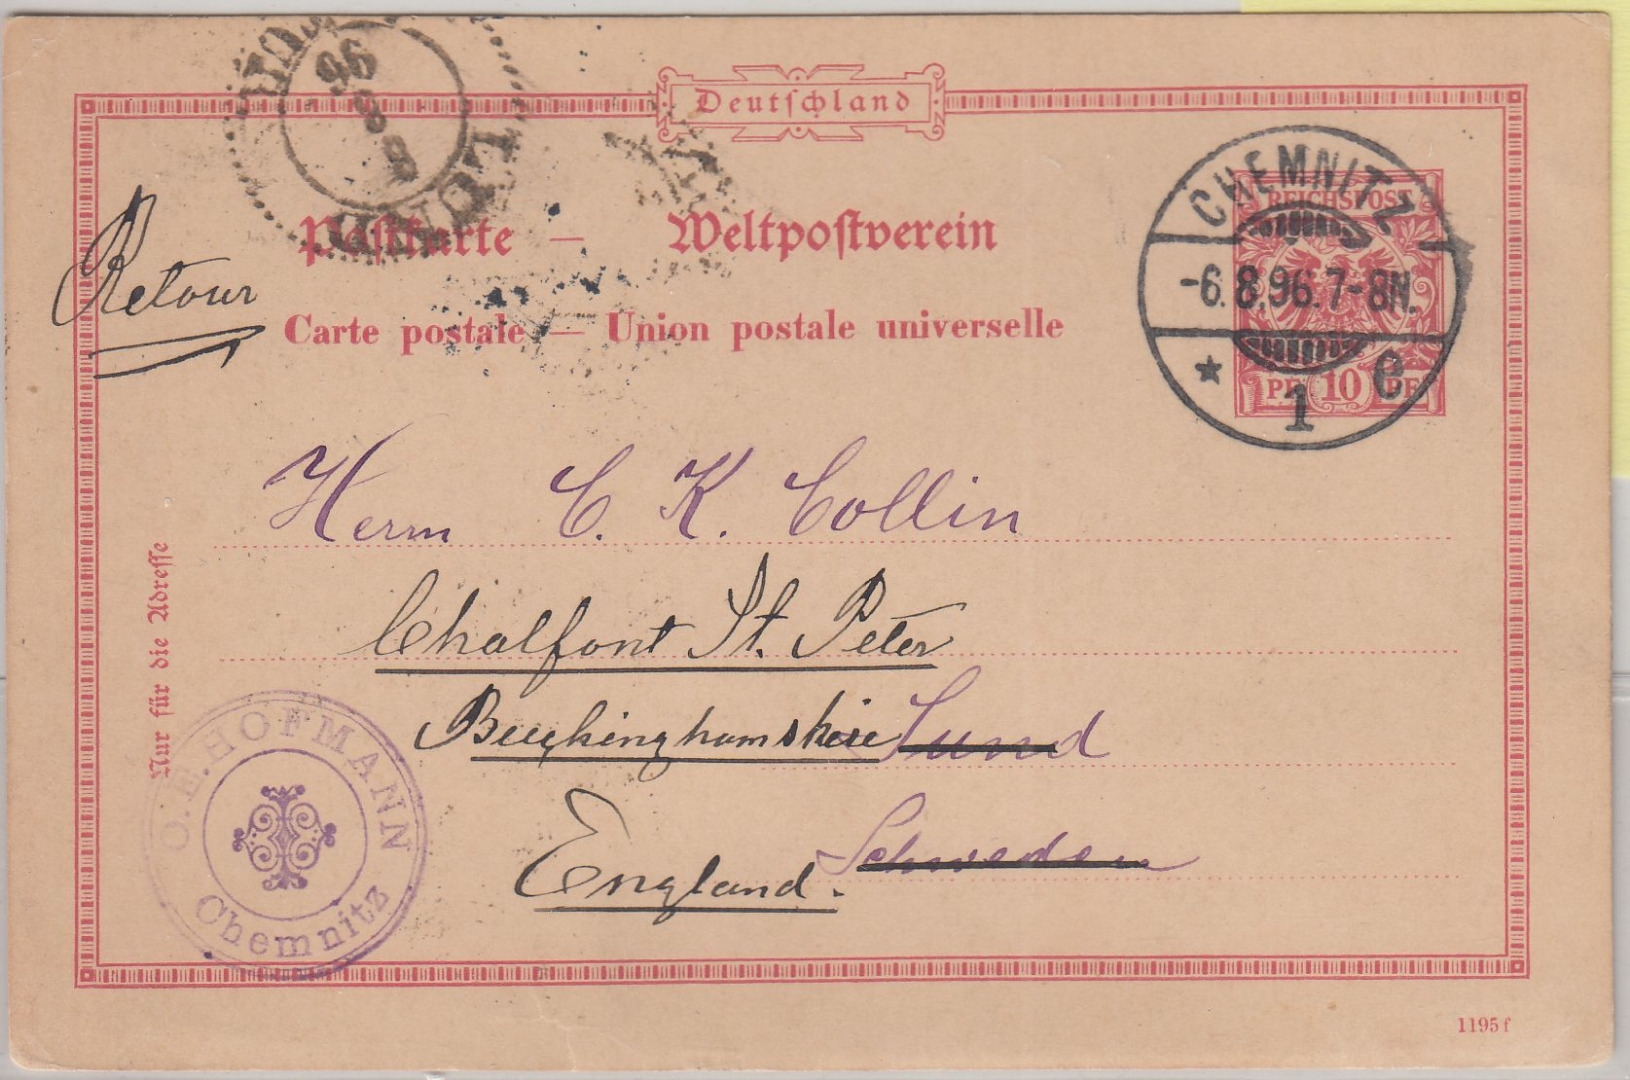 Deutschland
96
8
8
CHEMNITZ
REICHSPOST
-6.8.96.7-8N.
* 1 e
PF 10 PF
Postkarte — Weltpostverein
Carte postale — Union postale universelle
Retour
Herrn C. K. Collin
Chalfont St. Peter
Buckinghamshire Lund
England. Schweden
Nur für die Adresse
O.E. HOFMANN
Chemnitz
1195 f